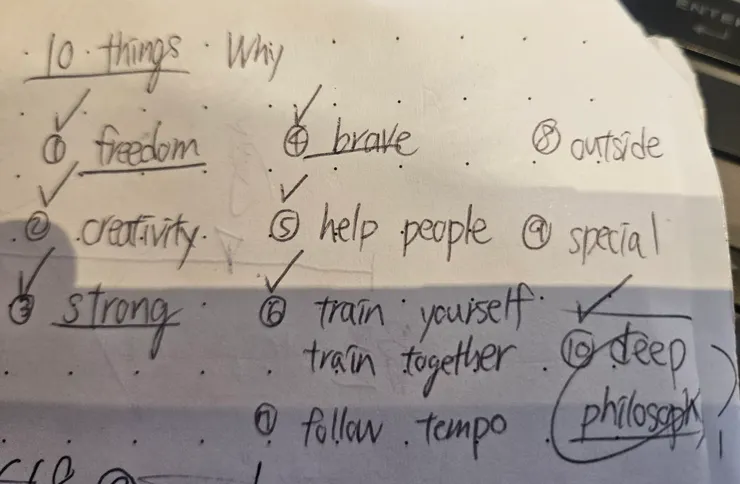 10 things Why
① freedom
② creativity
③ strong
④ brave
⑤ help people
⑥ train yourself
train together
⑦ follow tempo
⑧ outside
⑨ special
⑩ deep
philosoph
ENTER